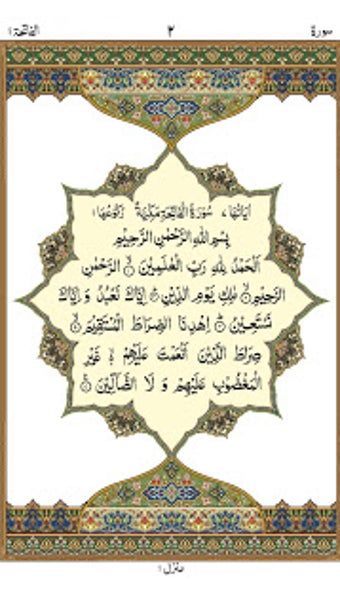 الفاتحة ١ ٢ سورة
اٰیاتُہا ٧ سُوْرَةُ الْفَاتِحَةِ مَكِّیَّةٌ رُکُوْعُہَا ١
بِسْمِ اللّٰهِ الرَّحْمٰنِ الرَّحِیْمِ
اَلْحَمْدُ لِلّٰهِ رَبِّ الْعٰلَمِیْنَ ۙ﴿۱﴾ الرَّحْمٰنِ
الرَّحِیْمِ ۙ﴿۲﴾ مٰلِكِ یَوْمِ الدِّیْنِ ؕ﴿۳﴾ اِیَّاكَ نَعْبُدُ وَ اِیَّاكَ
نَسْتَعِیْنُ ؕ﴿۴﴾ اِهْدِنَا الصِّرَاطَ الْمُسْتَقِیْمَ ۙ﴿۵﴾
صِرَاطَ الَّذِیْنَ اَنْعَمْتَ عَلَیْهِمْ ۙ۬ غَیْرِ
الْمَغْضُوْبِ عَلَیْهِمْ وَ لَا الضَّآلِّیْنَ
منزل ١